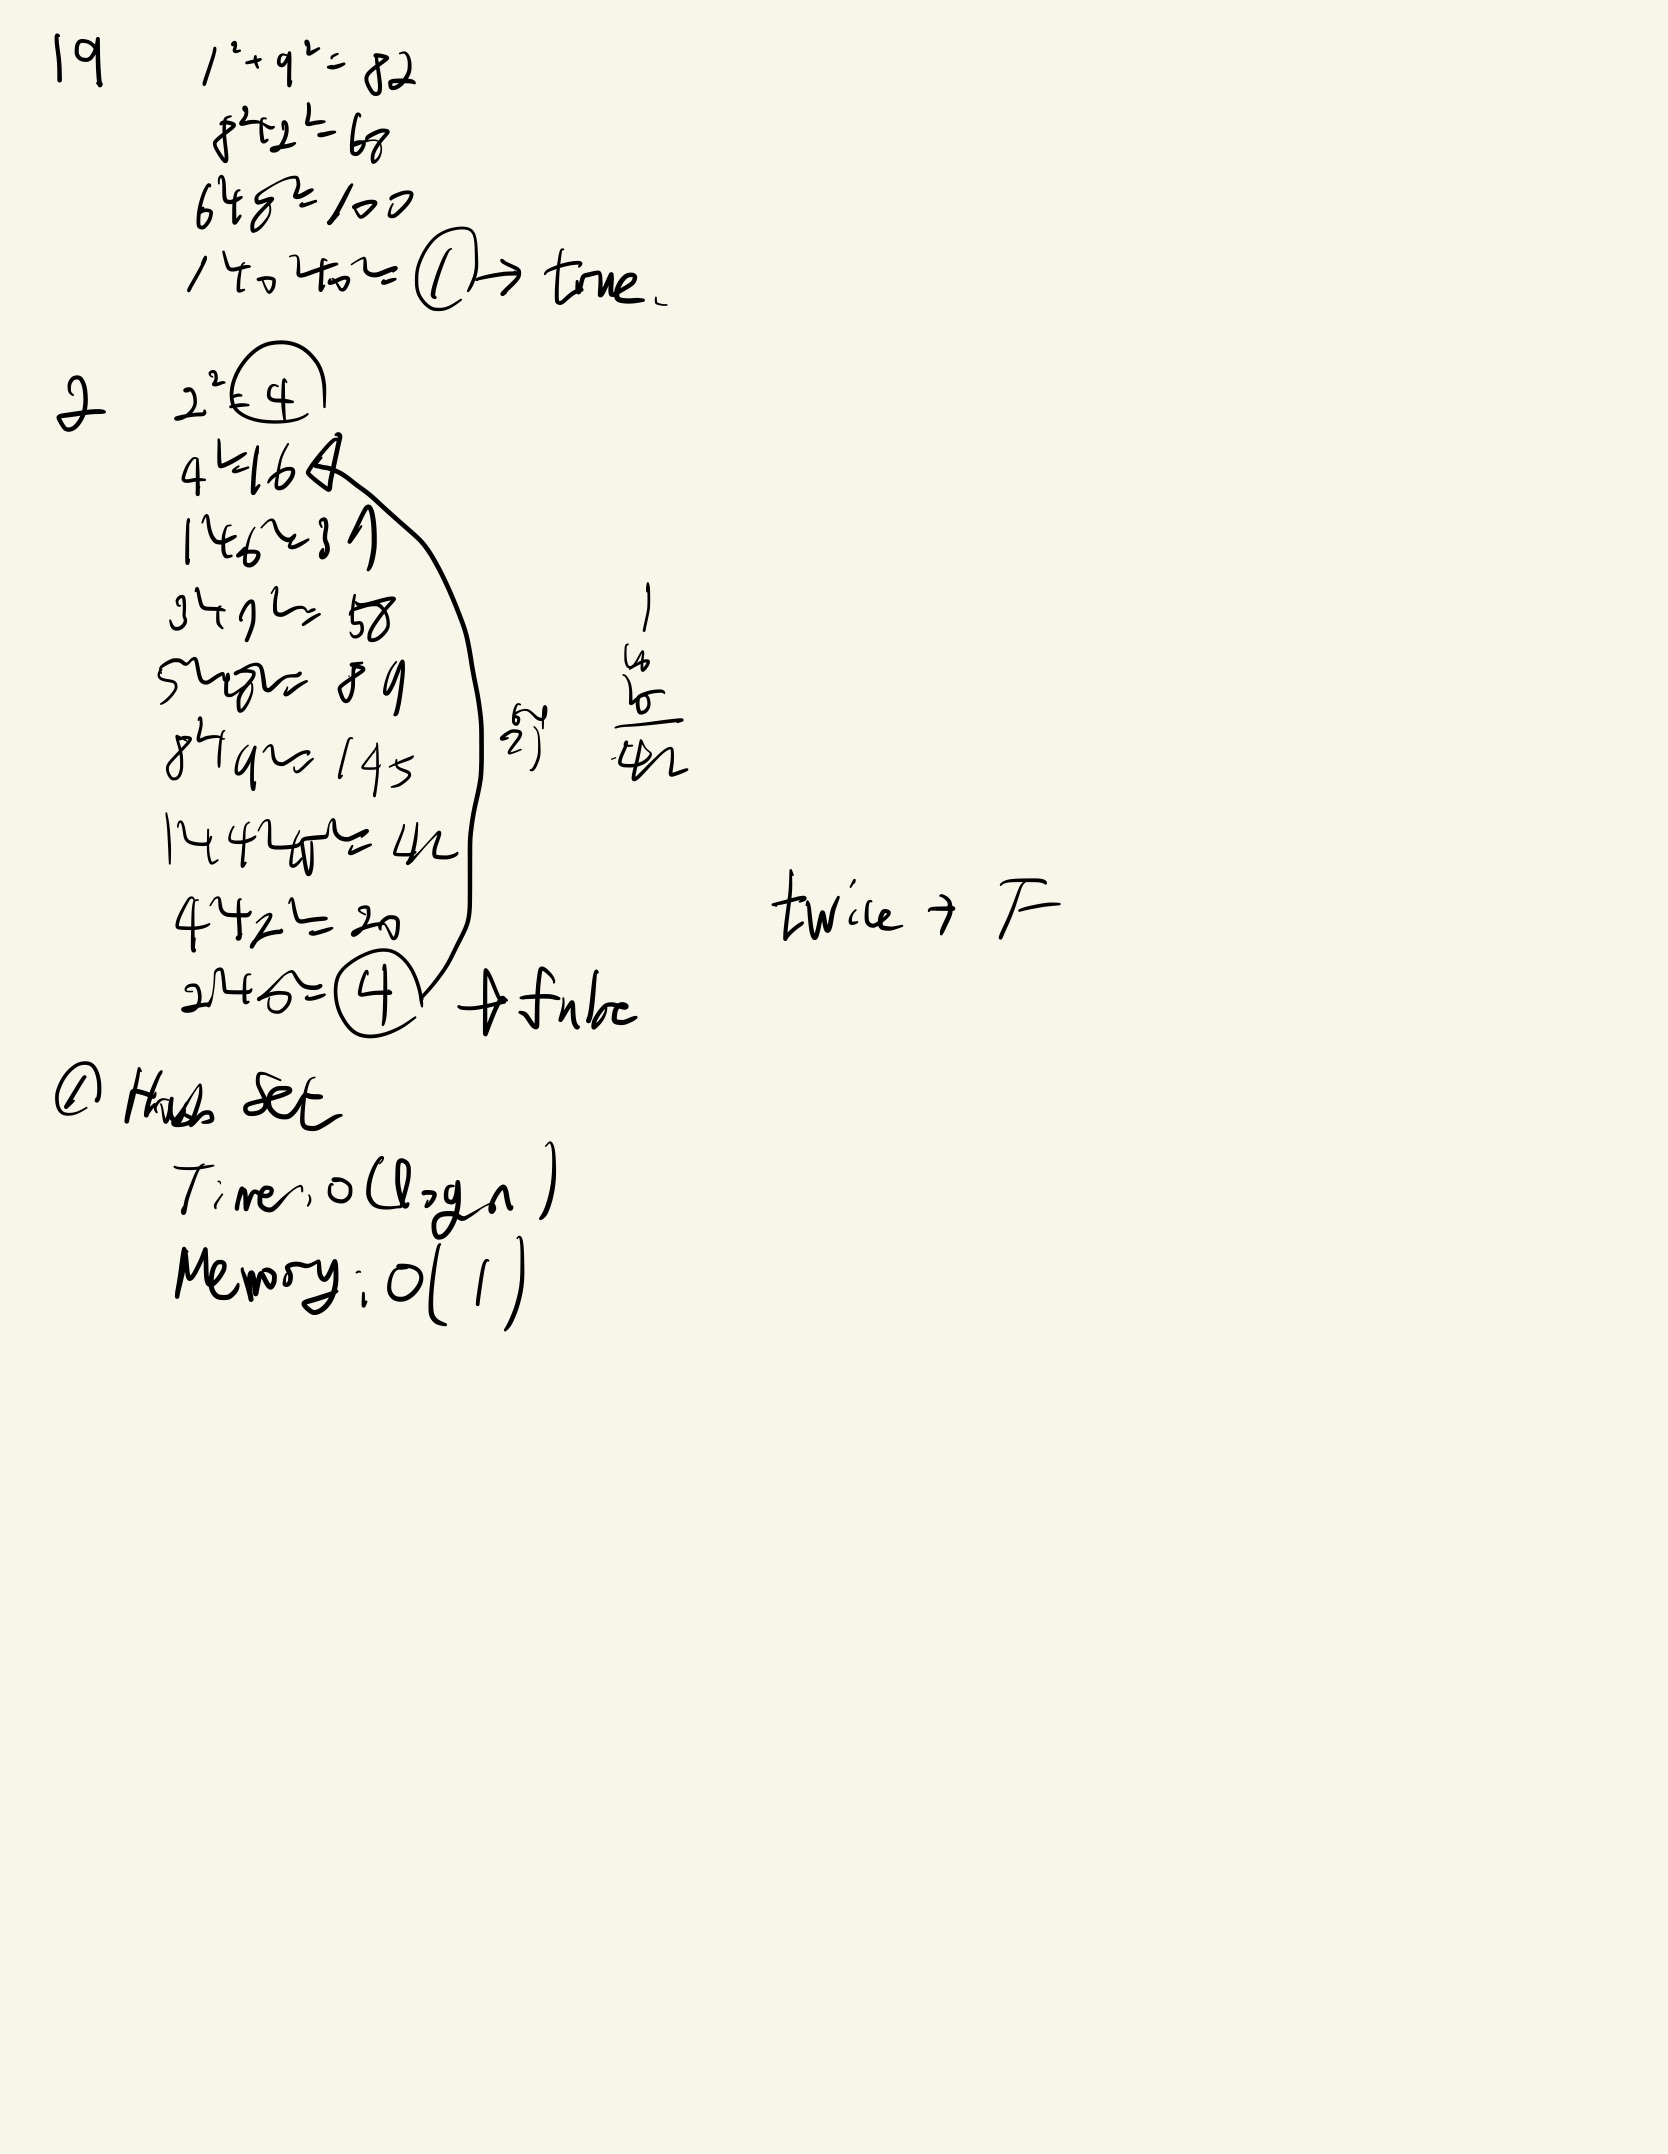 19
1² + 9² = 82
8² + 2² = 68
6² + 8² = 100
1² + 0² + 0² = 1 → true.
2
2² = 4
4² = 16
1² + 6² = 37
3² + 7² = 58
5² + 8² = 89
8² + 9² = 145
1² + 4² + 5² = 42
4² + 2² = 20
2² + 0² = 4 → false
1
42
twice → F
① Hash Set
Time: O(log n)
Memory: O(1)